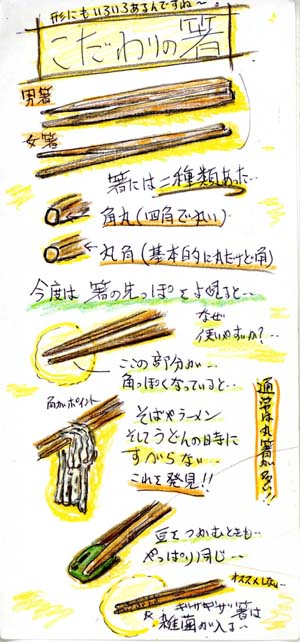 形にもいろいろあるんですね〜
こだわりの箸
男箸
女箸
箸には二種類あった‥
角丸(四角で丸い)
丸角(基本的に丸だけど角)
今度は箸の先っぽをよ見ると‥
なぜ
使いやすいか?‥
この部分が‥
角っぽくなっていると‥
角がポイント
そばやラーメン
そしてうどんの時に
すべらない‥
これを発見!!
通常は丸箸が多い!!
豆をつかむときも‥
やっぱり同じ‥
オススメしない‥
ギザギザ箸は
雑菌が入る‥